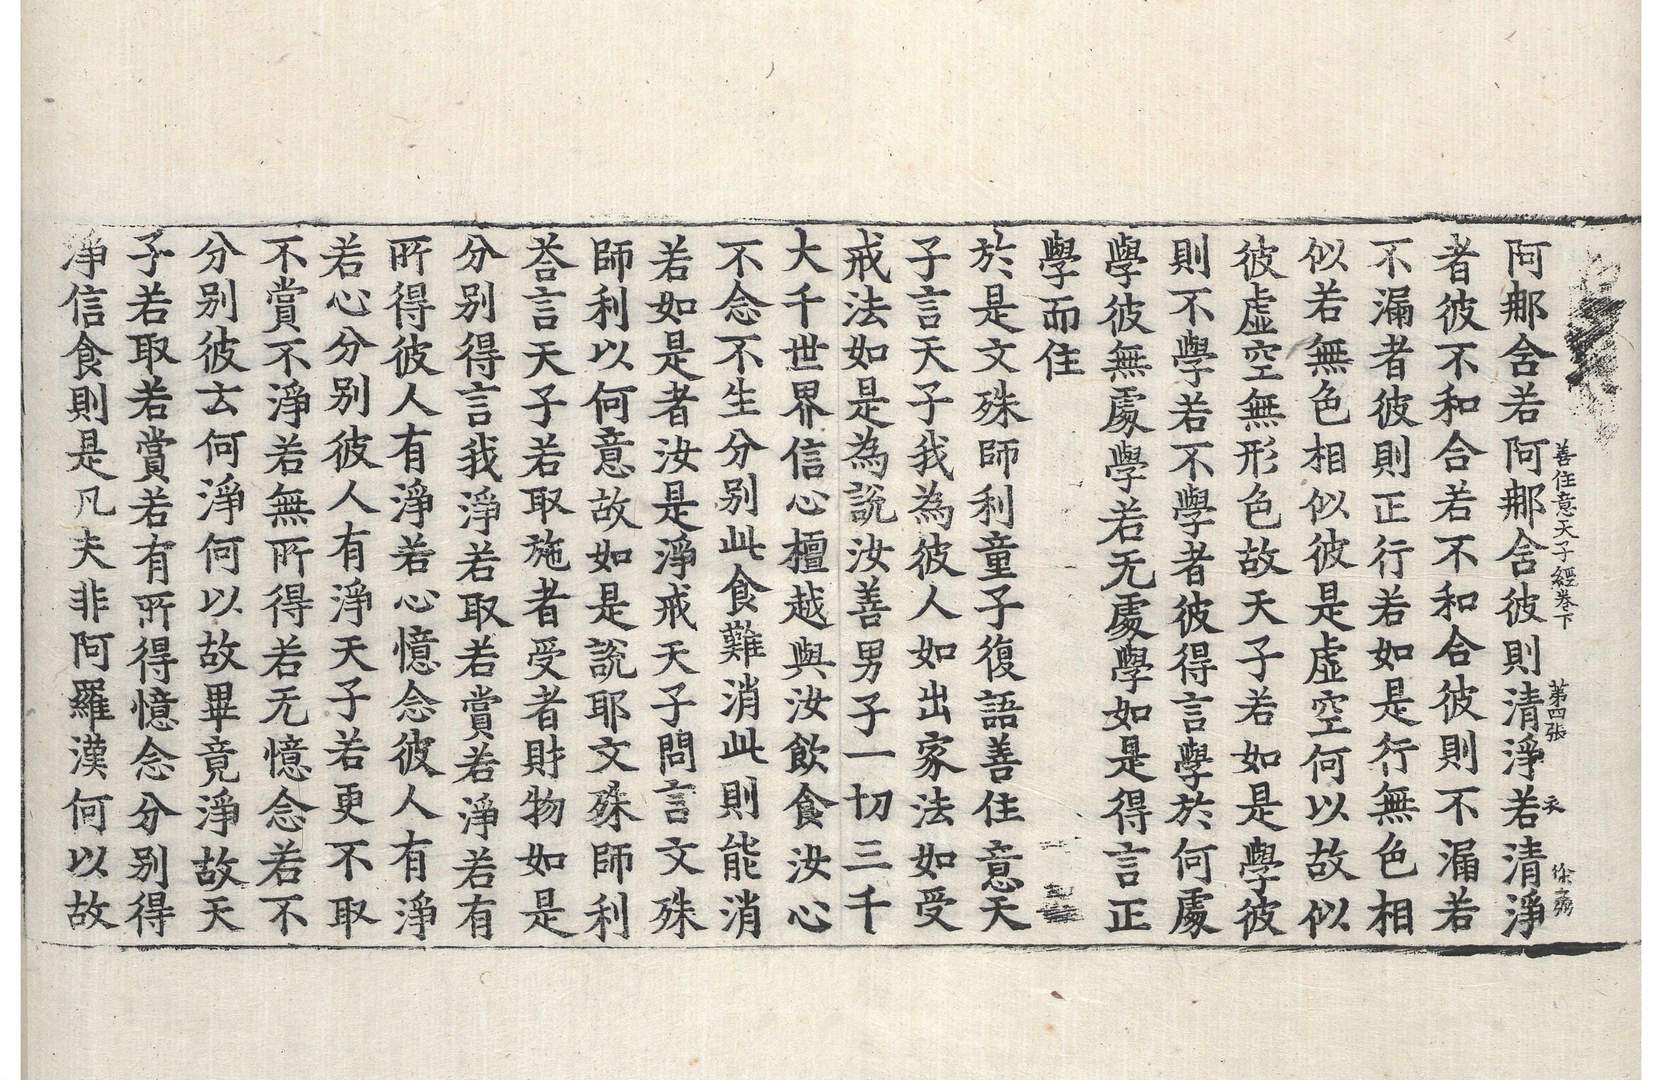 善住意天子經卷下　第四張　衣
阿那含若阿那含彼則清淨若清淨
者彼不和合若不和合彼則不漏若
不漏者彼則正行若如是行無色相
似若無色相似彼是虛空何以故似
彼虛空無形色故天子若如是學彼
則不學若不學者彼得言學於何處
學彼無處學若无處學如是得言正
學而住
於是文殊師利童子復語善住意天
子言天子我為彼人如出家法如受
戒法如是為說汝善男子一切三千
大千世界信心檀越與汝飲食汝心
不念不生分別此食難消此則能消
若如是者汝是淨戒天子問言文殊
師利以何意故如是說耶文殊師利
荅言天子若取施者受者財物如是
分別得言我淨若取若賞若淨若有
所得彼人有淨若心憶念彼人有淨
若心分別彼人有淨天子若更不取
不賞不淨若無所得若无憶念若不
分別彼云何淨何以故畢竟淨故天
子若取若賞若有所得憶念分別得
淨信食則是凡夫非阿羅漢何以故